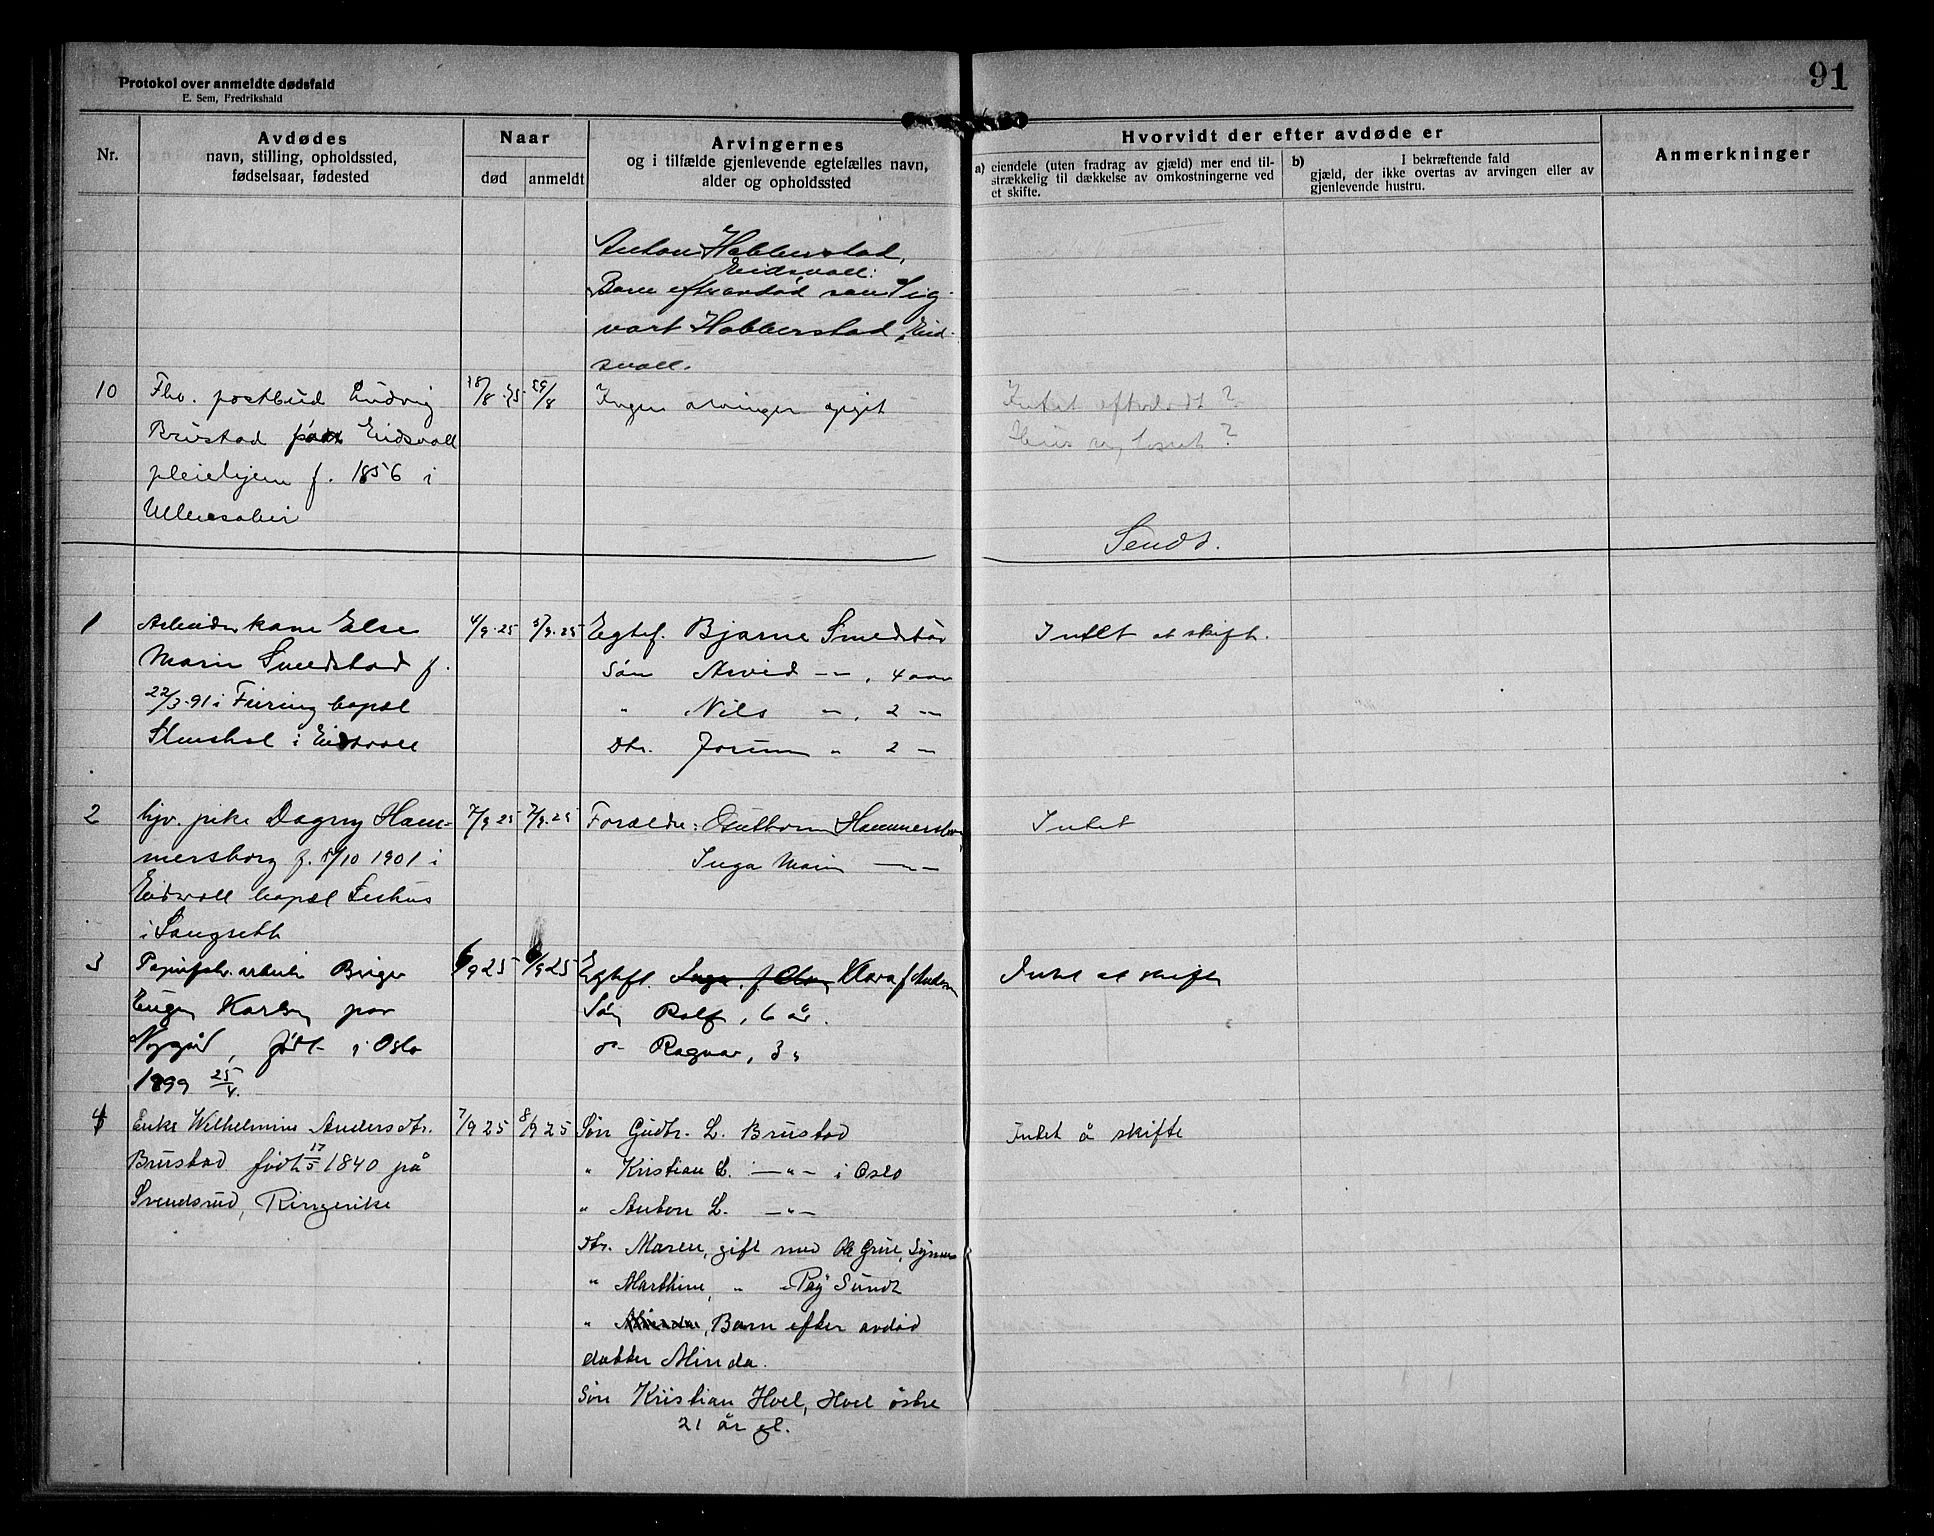 Protokol over anmeldte dødsfald
E. Sem, Fredrikshald
91
Nr.
Avdødes
navn, stilling, opholdssted,
fødselsaar, fødested
Naar
død
anmeldt
Arvingernes
og i tilfælde gjenlevende egtefælles navn,
alder og opholdssted
Hvorvidt der efter avdøde er
a) eiendele (uten fradrag av gjæld) mer end til-
strækkelig til dækkelse av omkostningerne ved
et skifte.
b) I bekræftende fald
gjæld, der ikke overtas av arvingen eller av
gjenlevende hustru.
Anmerkninger
Anton Habberstad,
Eidsvoll:
Barn efter avdød søn Sig-
vart Habberstad, Eid-
svoll.
10
Fhv. postbud Ludvig
Brustad Eidsvoll
pleiehjem f. 1856 i
Ullensaker
18/8 25
29/8
Ingen arvinger opgit
Intet efterladt?
Hus og ?
Sendt.
1
Arbeiderkone Else
Marie Smedstad f.
22/3-91 i Feiring bopæl
i Eidsvoll
4/9-25
5/9-25
Egtef. Bjarne Smedstad
Søn Arvid -"-, 4 aar
" Nils -"-, 2 -"-
Dtr. Jorunn " 2 -"-
Intet at skifte.
2
hjv. pike Dagny Ham-
mersborg f. 8/10 1901 i
Eidsvoll bopæl
i Langseth
7/9 25
7/9-25
Forældre: Hammersborg
Inga Marie -"-
Intet
3
arbeider Birger
Eugen Karlsen paa
Nygård, født i Oslo
1899 25/4.
6/9 25
6/9 25
Egtef. Klara f. Anders
Søn Rolf, 6 år.
do. Ragnar, 3 "
Intet at skifte
4
Enke Wilhelmine Andersdtr.
Brustad født 17/5 1840 på
Svendsrud, Ringerike
7/9 25
8/9 25
Søn Gudbr. L. Brustad
" Kristian L. -"- i Oslo
" Anton L. -"-
Dtr. Maren, gift med Ole Grue,
" Marthine, " Sundt
" Barn efter avdød
datter Minda.
Søn Kristian Hoel, Hoel østre
21 år gl.
Intet å skifte